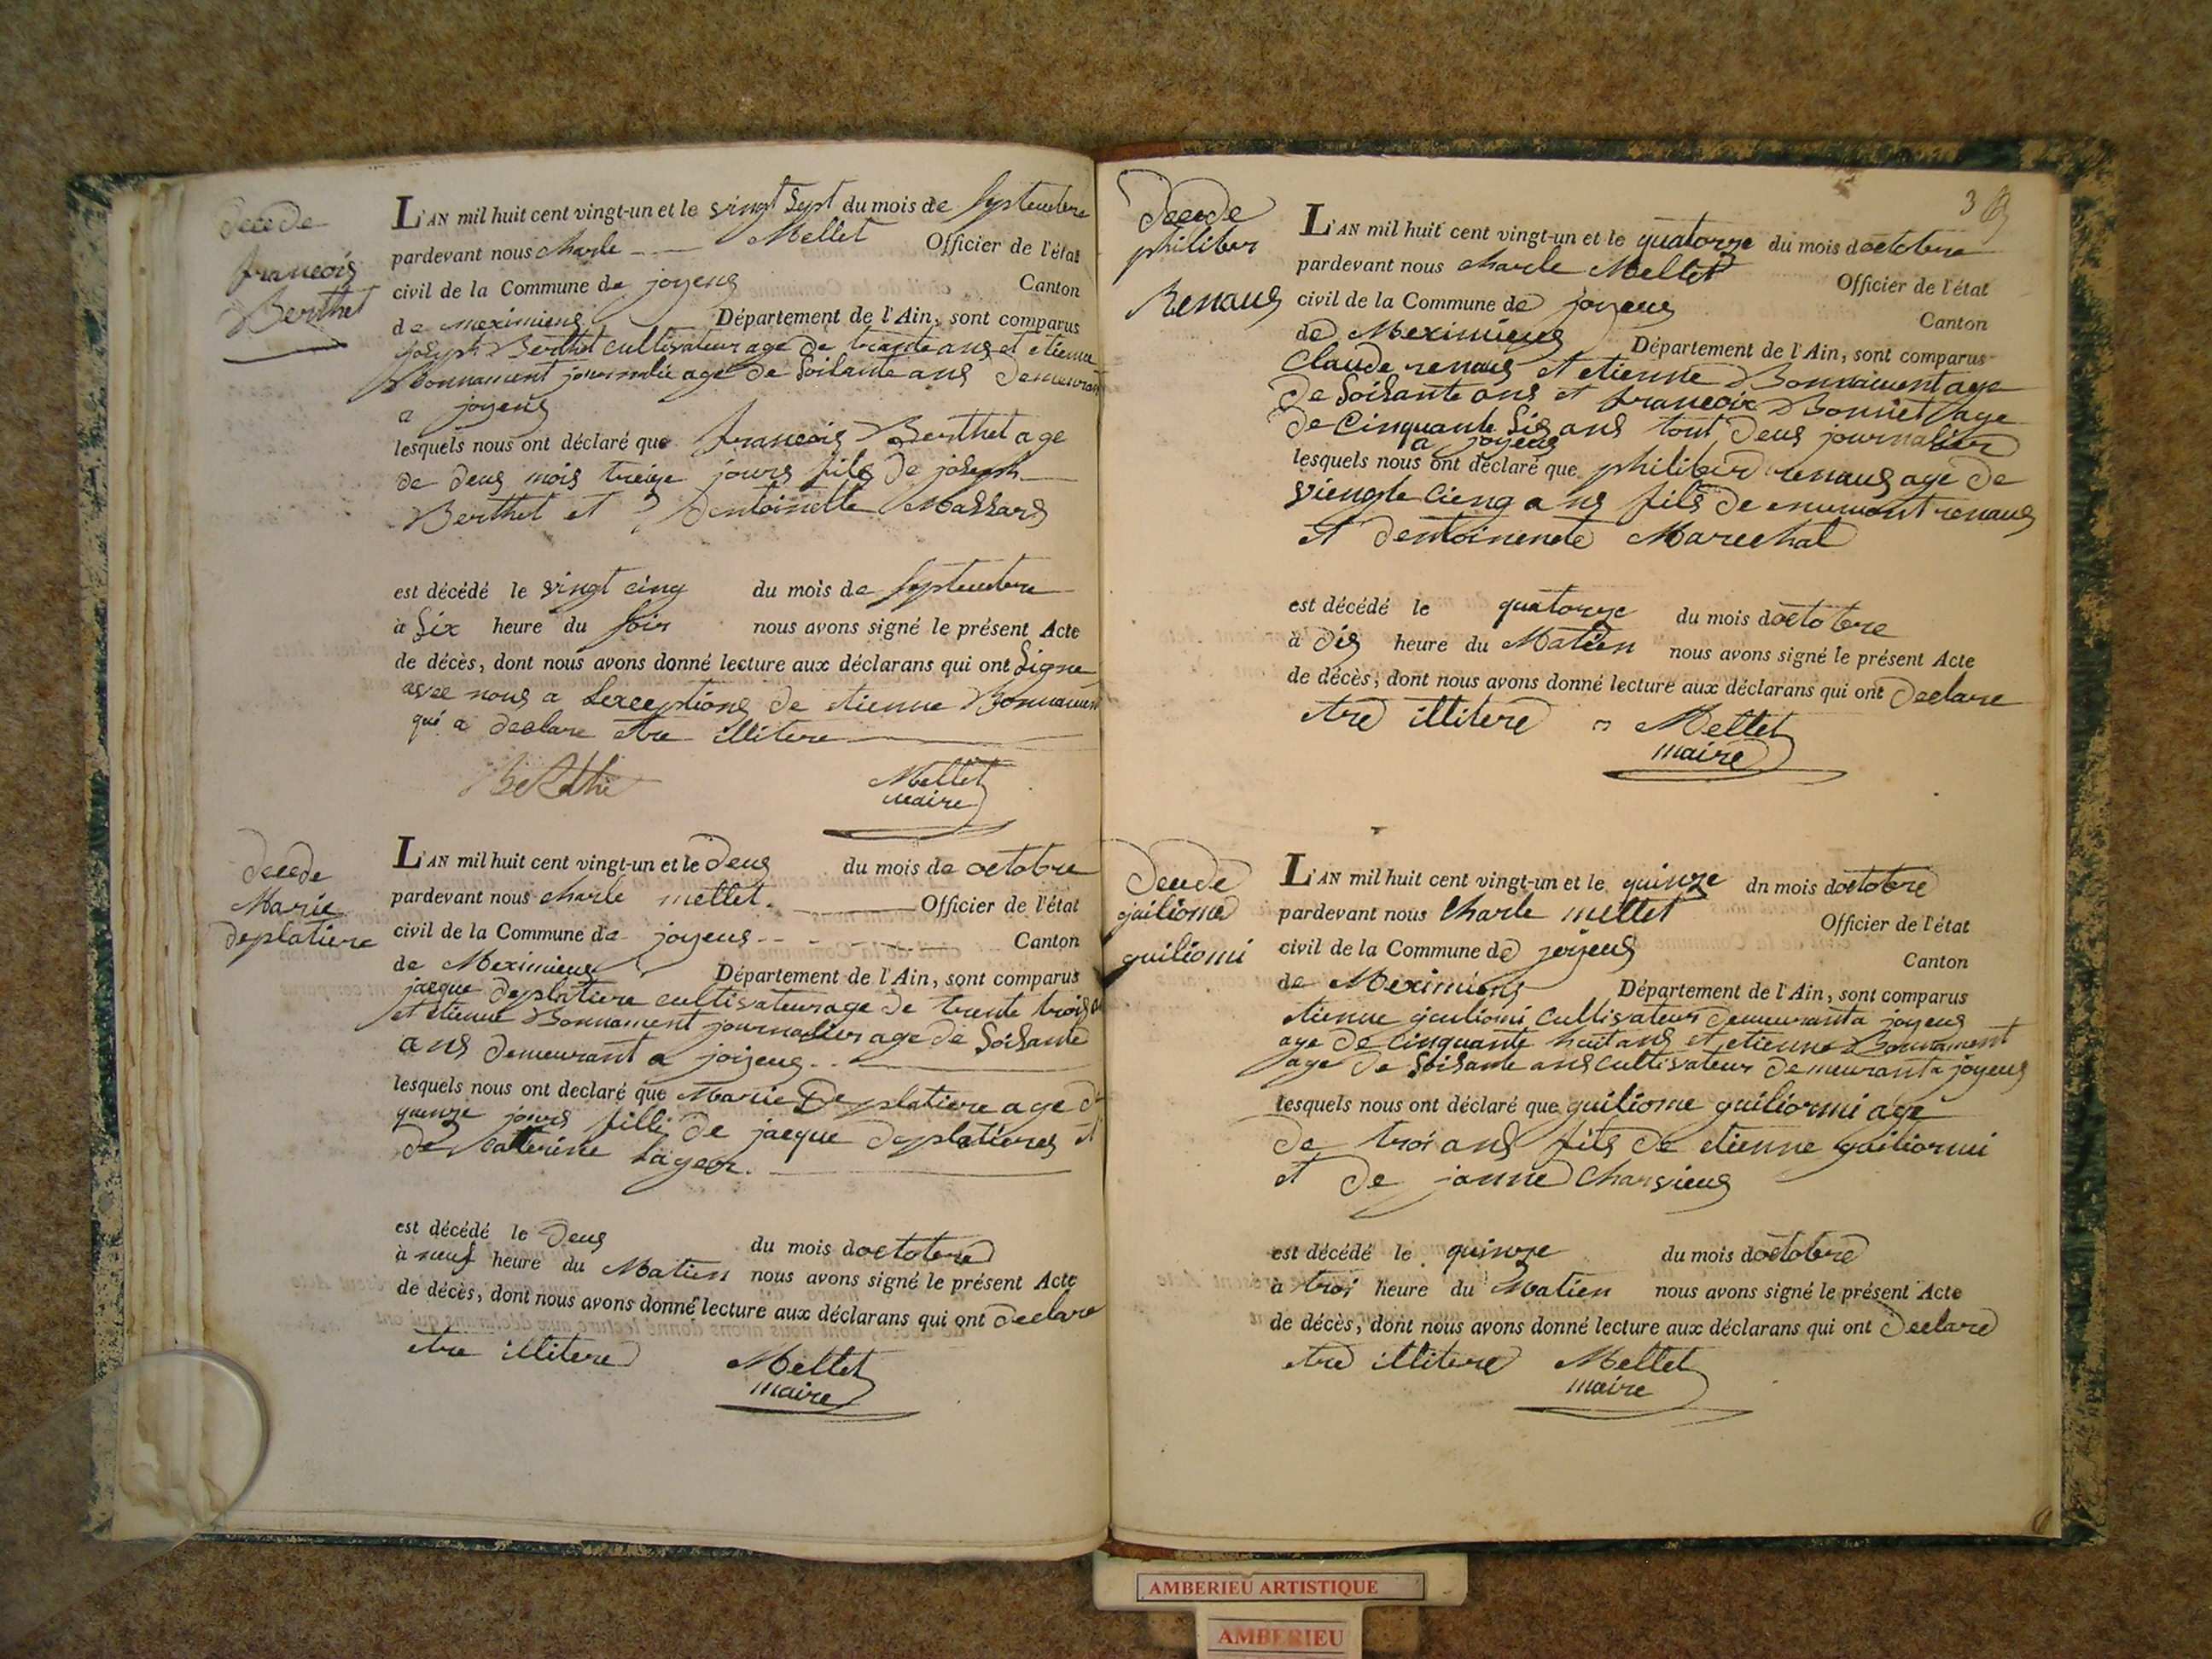 decede
francois
Berthet
L'AN mil huit cent vingt-un et le vingt sept du mois de septembre
pardevant nous charle Mellet Officier de l'état
civil de la Commune de joyeus Canton
de meximieus Département de l'Ain, sont comparus
joseph Berthet cultivateur age de trante ans et etienne
Bonnament journalié age de soisante ans demeurant
a joyeus
lesquels nous ont déclaré que francois Berthet age
de deus mois treize jours fils de joseph
Berthet et dentoinette Massard
est décédé le vingt cinq du mois de septembre
à six heure du soir nous avons signé le présent Acte
de décès, dont nous avons donné lecture aux déclarans qui ont signe
avec nous a lexceptions de etienne Bonnament
qui a declare etre illitere
Mellet
maire
decede
Marie
deplatiere
L'AN mil huit cent vingt-un et le deus du mois de octobre
pardevant nous charle mellet. Officier de l'état
civil de la Commune de joyeus Canton
de Meximieus Département de l'Ain, sont comparus
jacque deplatiere cultivateur age de trente trois
et etienne Bonnament journalier age de soisante
ans demeurant a joiyeus
lesquels nous ont declaré que Marie Deplatiere age de
quinze jours fille de jacque deplatieres et
de caterine Lager.
est décédé le deus du mois doctobre
à neuf heure du Matien nous avons signé le présent Acte
de décès, dont nous avons donné lecture aux déclarans qui ont declare
etre illitere Mellet
maire
3
decede
philiber
Renaus
L'AN mil huit cent vingt-un et le quatorze du mois doctobre
pardevant nous charle Mellet Officier de l'état
civil de la Commune de joyeus Canton
de Meximieus Département de l'Ain, sont comparus
Claude renaus et etienne Bonnament age
de soisante ans et francois Bonnet age
de cinquante sis ans tout deus journalier
a joyeus
lesquels nous ont déclaré que philiber renaus age de
viengte cienq ans fils de enumont renaus
et dentoinenete Marechal
est décédé le quatorze du mois doctobre
à dis heure du Matien nous avons signé le présent Acte
de décès, dont nous avons donné lecture aux déclarans qui ont declare
etre illitere Mellet
maire
decede
guiliome
guiliomi
L'AN mil huit cent vingt-un et le quinze dn mois doctobre
pardevant nous Charle mellet Officier de l'état
civil de la Commune de joyeus Canton
de Meximieus Département de l'Ain, sont comparus
etienne guiliomi cultivateur demeurant a joyeus
age de cinquante huit ans et etienne Bonnament
age de soisante ans cultivateur demeurant a joyeus
lesquels nous ont déclaré que guiliome guiliormi age
de troi ans fils de etienne guiliormi
et de janne Charvieus
est décédé le quinze du mois doctobre
à troi heure du Matien nous avons signé le présent Acte
de décès, dont nous avons donné lecture aux déclarans qui ont declare
etre illitere Mellet
maire
AMBERIEU ARTISTIQUE
AMBERIEU